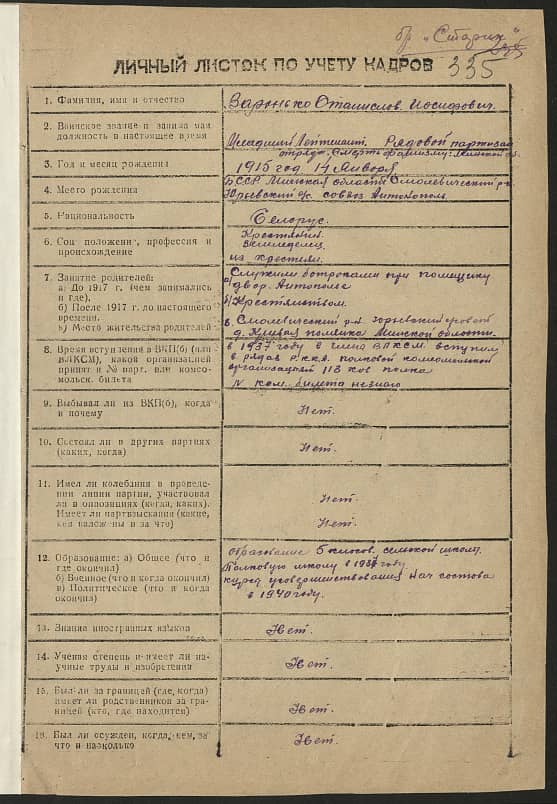 бр. „Старик“
335
ЛИЧНЫЙ ЛИСТОК ПО УЧЕТУ КАДРОВ
1. Фамилия, имя и отчество
Станислов Иосифович.
2. Воинское звание и занима мая
должность в настоящее время
Младший Лейтенант. Рядовой партизан
отряда „Смерть фашизму“ Минской об.
3. Год и месяц рождения
1915 год 14 Января
4. Место рождения
БССР Минская область Смолевический р-н
Юрьевский с/с совхоз Антополь
5. Национальность
Белорус.
6. Соц положени, профессия и
происхождение
Крестянин
Земледелец
из крестьян.
7. Занятие родителей:
а) До 1917 г. (чем занимались
и где).
б) После 1917 г. до настоящего
времени.
в) Место жительства родителей
Служили ботроками при помещику
двор. Антополье
б) Крестянством.
в. Смолевический р-н Юрьевский
д. Кривая поляна Минской области.
8. Время вступления в ВКП(б) (или
ВЛКСМ), какой организацией
принят и № парт. или комсо-
мольск. билета
в 1937 году в члена ВЛКСМ. вступил
в рядах Р.К.К.А. полковой комсомольской
организацией 113 полка
N ком. билета незнаю
9. Выбывал ли из ВКП(б), когда
и почему
Нет.
10. Состоял ли в других партиях
(каких, когда)
Нет.
11. Имел ли колебания в проведе-
нии линии партии, участвовал
ли в оппозициях (когда, каких).
Имеет ли партвзыскания (какие,
кем наложены и за что)
Нет.
Нет.
12. Образование: а) Общее (что и
где окончил)
б) Военное (что и когда окончил)
в) Политическое (что и когда
окончил)
образование 5 класов. сельской школы.
Полковую школу в 1937 году
курсы усовершенствования нач состова
в 1940 году.
13. Знание иностранных языков
Нет.
14. Ученая степень и имеет ли на-
учные труды и изобретения
Нет.
15. Был ли за границей (где, когда)
имеет ли родственников за гра-
ницей (кто, где находится)
Нет.
16. Был ли осужден, когда, кем, за
что и насколько
Нет.